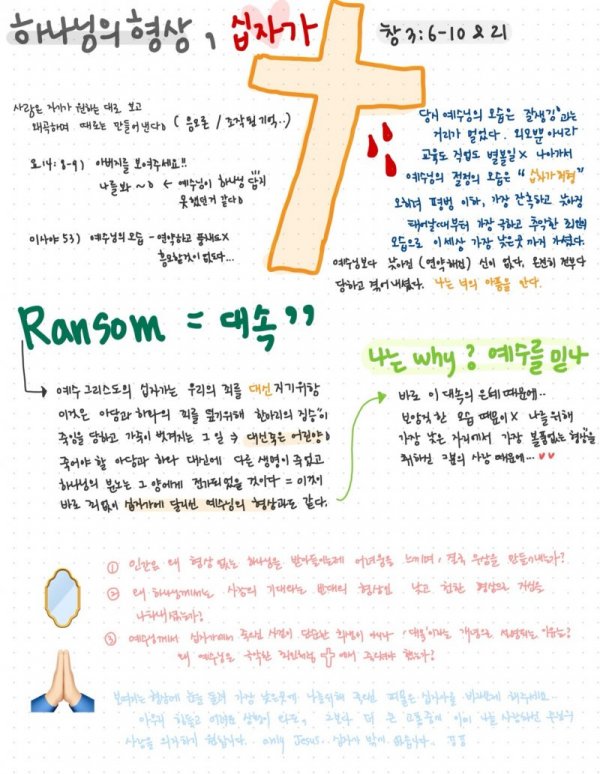 하나님의 형상, 십자가
창 3:6-10 & 21
사람은 자기가 원하는 대로 보고
왜곡하며 때로는 만들어 낸다 (음모론 / 조작된 기억..)
요 14:8-9) 아버지를 보여주세요!!
나를 봐 ~ ← 예수님이 하나님 답지
못했던거 같다
이사야 53) 예수님의 모습 - 연약하고 풍채도 X
흠모할것이 없도다...
당시 예수님의 모습은 잘생김과는
거리가 멀었다. 외모뿐 아니라
교육도 직업도 별볼일 X 나아가서
예수의 절정의 모습은 "십자가 처형"
오히려 평범 이하, 가장 잔혹하고 낮아짐
태어날때부터 가장 극하고 추악한 죄인의
모습으로 이 세상 가장 낮은곳 까지 가셨다.
예수님보다 낮아진 (연약해진) 신이 없다, 온전히 전부다
당하고 겪어 내셨다. 나는 너의 아픔을 안다.
Ransom = 대속"
예수 그리스도의 십자가는 우리의 죄를 대신 지기위함
이것은 아담과 하와의 죄를 덮기위해 한마리의 짐승이
죽임을 당하고 가죽이 벗겨지는 그 일 ⇒ 대신 죽은 어린양
죽어야 할 아담과 하와 대신에 다른 생명이 죽었고
하나님의 분노는 그 양에게 전가되었을 것이다 = 이것이
바로 죄없이 십자가에 달리신 예수님의 형상과도 같다.
나는 why? 예수를 믿나
바로 이 대속의 은혜 때문에..
보암직한 모습 때문이 X 나를 위해
가장 낮은 자리에서 가장 볼품없는 형상을
취하신 그분의 사랑 때문에...
① 인간은 왜 형상 없는 하나님을 받아들이는데 어려움을 느끼며, 결국 우상을 만들어내는가?
② 왜 하나님께서는 사람의 기대와는 반대의 형상인 낮고 천한 형상으로 자신을
나타내셨는가?
③ 예수님께서 십자가에서 죽으신 사건이 단순한 희생이 아니라, '대속'이라는 개념으로 설명되는 이유는?
왜 예수님은 극악한 죄인처럼 에서 죽으셔야 했는가?
보여지는 형상에 눈을 돌려 가장 낮은곳에 나를위해 죽으신 십자가를 바라보게 해주세요..
아무리 힘들고 어려운 상황이 와도, 그보다 더 큰 고통중에 이미 나를 사랑하신 주님의
사랑을 의지하기 원합니다.. only Jesus.. 십자가 밖에 없습니다..